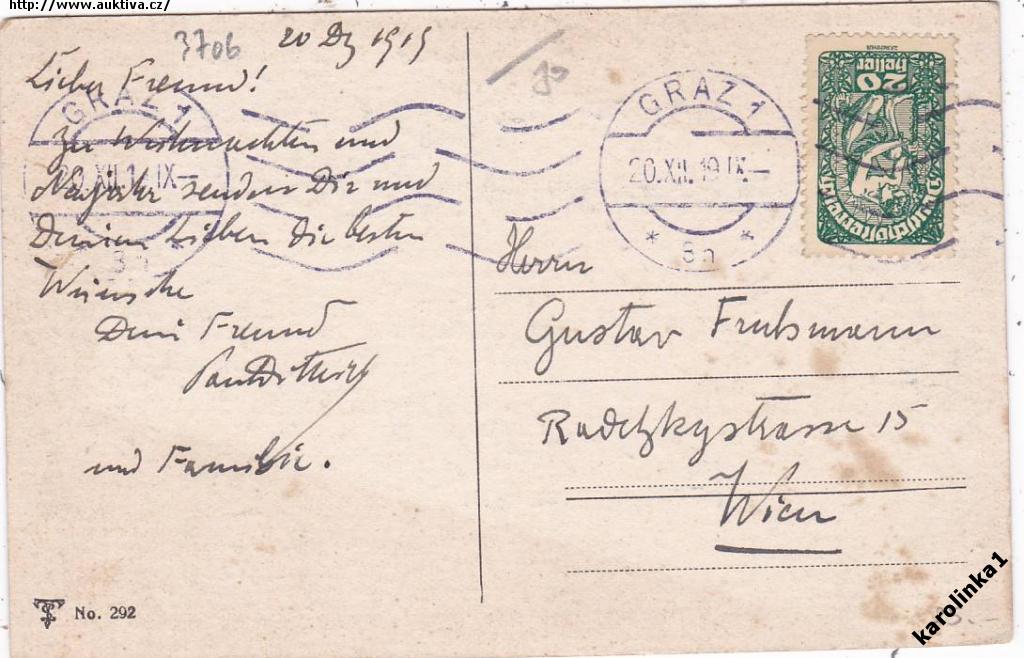 http://www.auktiva.cz/
3706
20 Dz 1919
Lieber Freund!
Zu Weihnachten und
Neujahr senden Dir und
Deinen Lieben die besten
Wünsche
Dein Freund
und Familie.
GRAZ 1
20.XII.19.IX—
GRAZ 1
20.XII.19.IX—
* 8h *
20
heller
Deutschösterreich
Herrn
Gustav Fruhsmann
Radetzkystrasse 15
Wien
No. 292
karolinka1